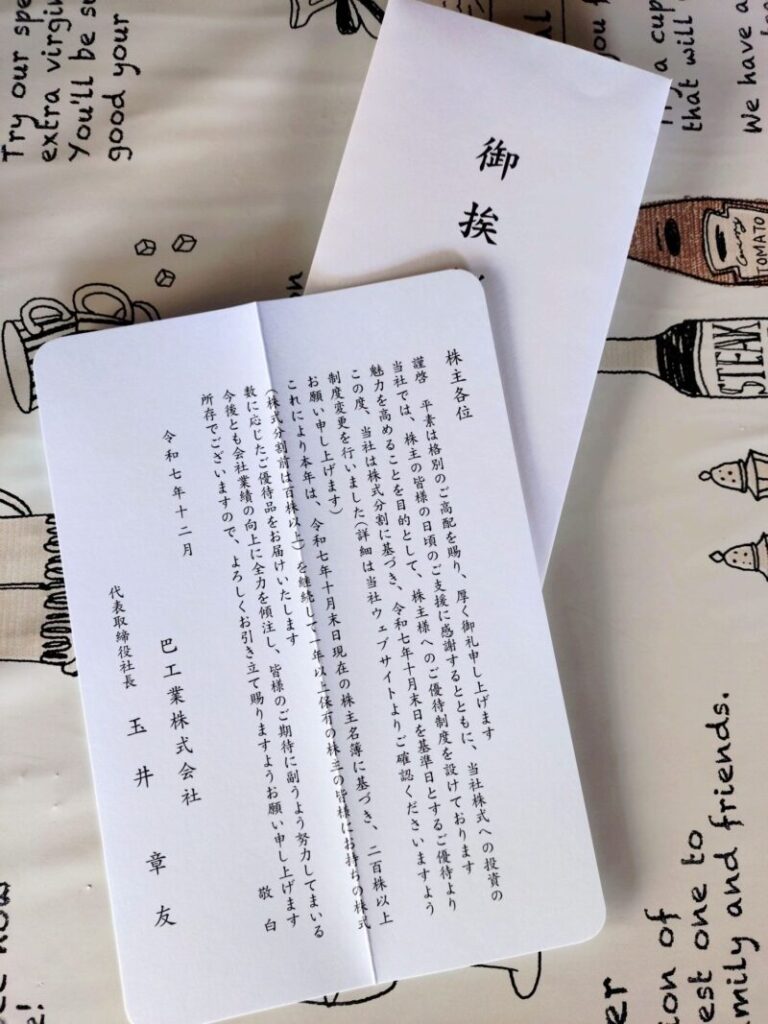 御挨
株主各位
謹啓　平素は格別のご高配を賜り、厚く御礼申し上げます
当社では、株主の皆様の日頃のご支援に感謝するとともに、当社株式への投資の
魅力を高めることを目的として、株主様へのご優待制度を設けております
この度、当社は株式分割に基づき、令和七年十月末日を基準日とするご優待より
制度変更を行いました（詳細は当社ウェブサイトよりご確認くださいますよう
お願い申し上げます）
これにより本年は、令和七年十月末日現在の株主名簿に基づき、二百株以上
（株式分割前は百株以上）を継続して一年以上保有の株主の皆様にお持ちの株式
数に応じたご優待品をお届けいたします
今後とも会社業績の向上に全力を傾注し、皆様のご期待に副うよう努力してまいる
所存でございますので、よろしくお引き立て賜りますようお願い申し上げます
敬白
令和七年十二月
巴工業株式会社
代表取締役社長　玉井　章友
Try our spe
extra virgin
You'll be s
good your
a cup
that will
We have a
TOMATO
STEAK
tion of
est one to
amily and friends.